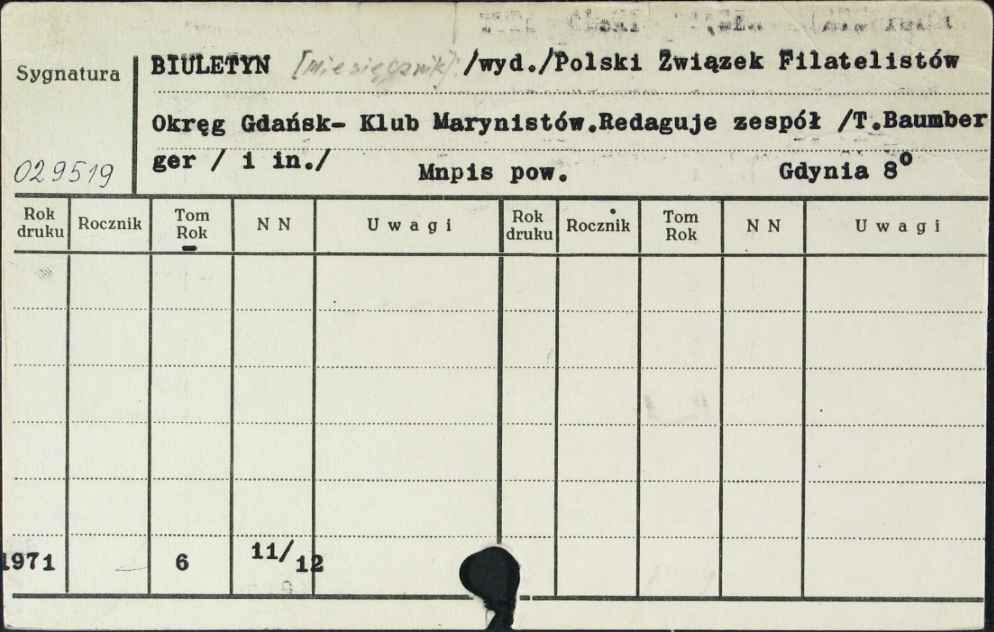 Sygnatura
BIULETYN [Miesięcznik] /wyd./Polski Związek Filatelistów
Okręg Gdańsk- Klub Marynistów.Redaguje zespół /T.Baumber
029519
ger / i in./ Mnpis pow. Gdynia 8°
Rok druku Rocznik Tom Rok N N Uwagi Rok druku Rocznik Tom Rok N N Uwagi
1971 6 11/12